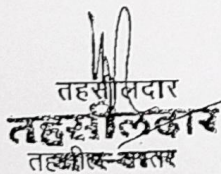 तहसीलदार
तहसीलदार
तहसील